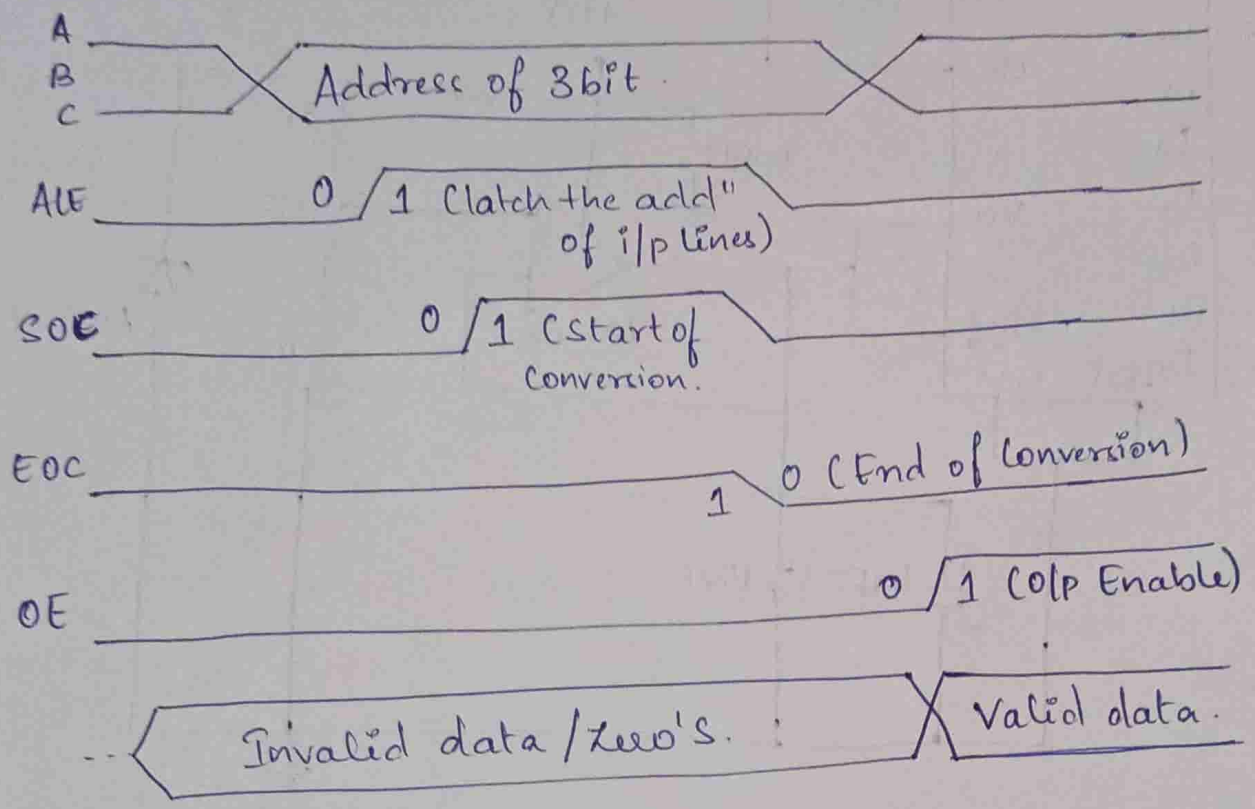 A
B
C
Address of 3bit.
ALE
0
1 (latch the add"
of i/p lines)
SOC
0
1 (start of
Conversion.
EOC
1
0 (End of Conversion)
OE
0
1 (o/p Enable)
Invalid data / zero's.
Valid data.